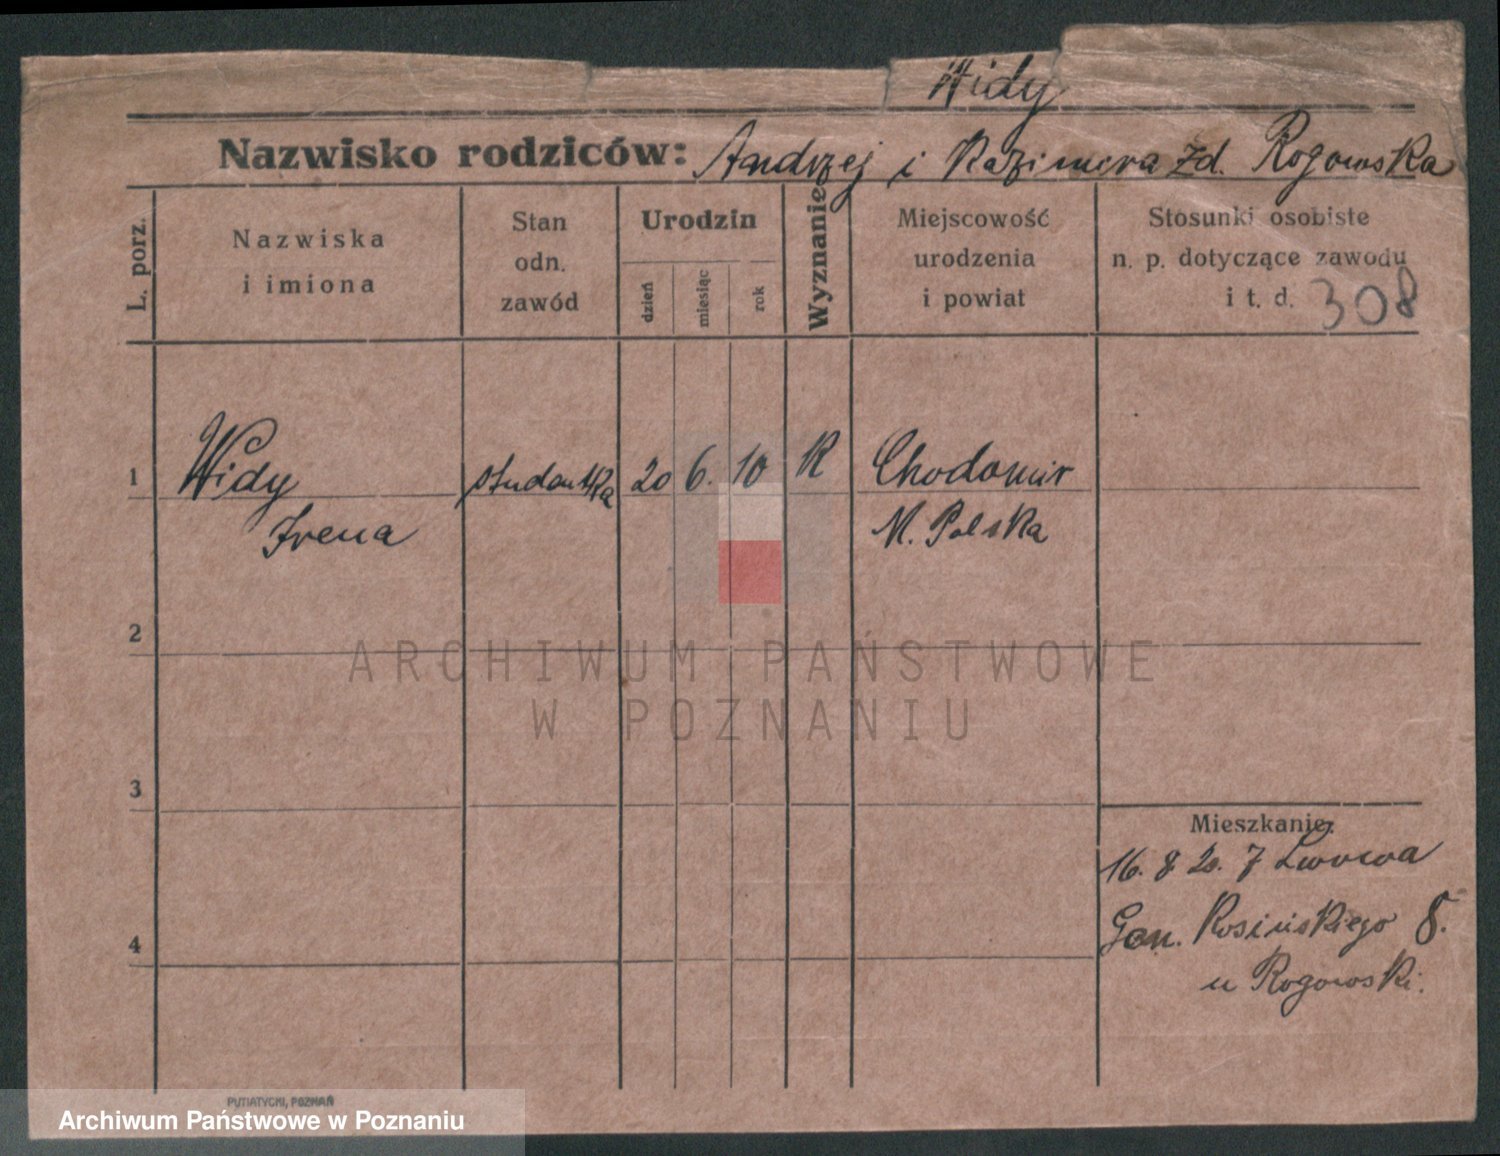 Widy
Nazwisko rodziców: Andrzej i Kazimiera zd. Rogowska
L. porz.
Nazwiska
i imiona
Stan
odn.
zawód
Urodzin
dzień
miesiąc
rok
Wyznanie
Miejscowość
urodzenia
i powiat
Stosunki osobiste
n. p. dotyczące zawodu
i t. d. 308
1 Widy studentka 20 6. 10 R Chodomir
Irena M. Polska
2
ARCHIWUM PAŃSTWOWE
W POZNANIU
3
Mieszkanie:
16. 8 20. z Lwowa
4 Gen. Kosińskiego 8.
u Rogowski.
PUTIATYCKI, POZNAŃ
Archiwum Państwowe w Poznaniu